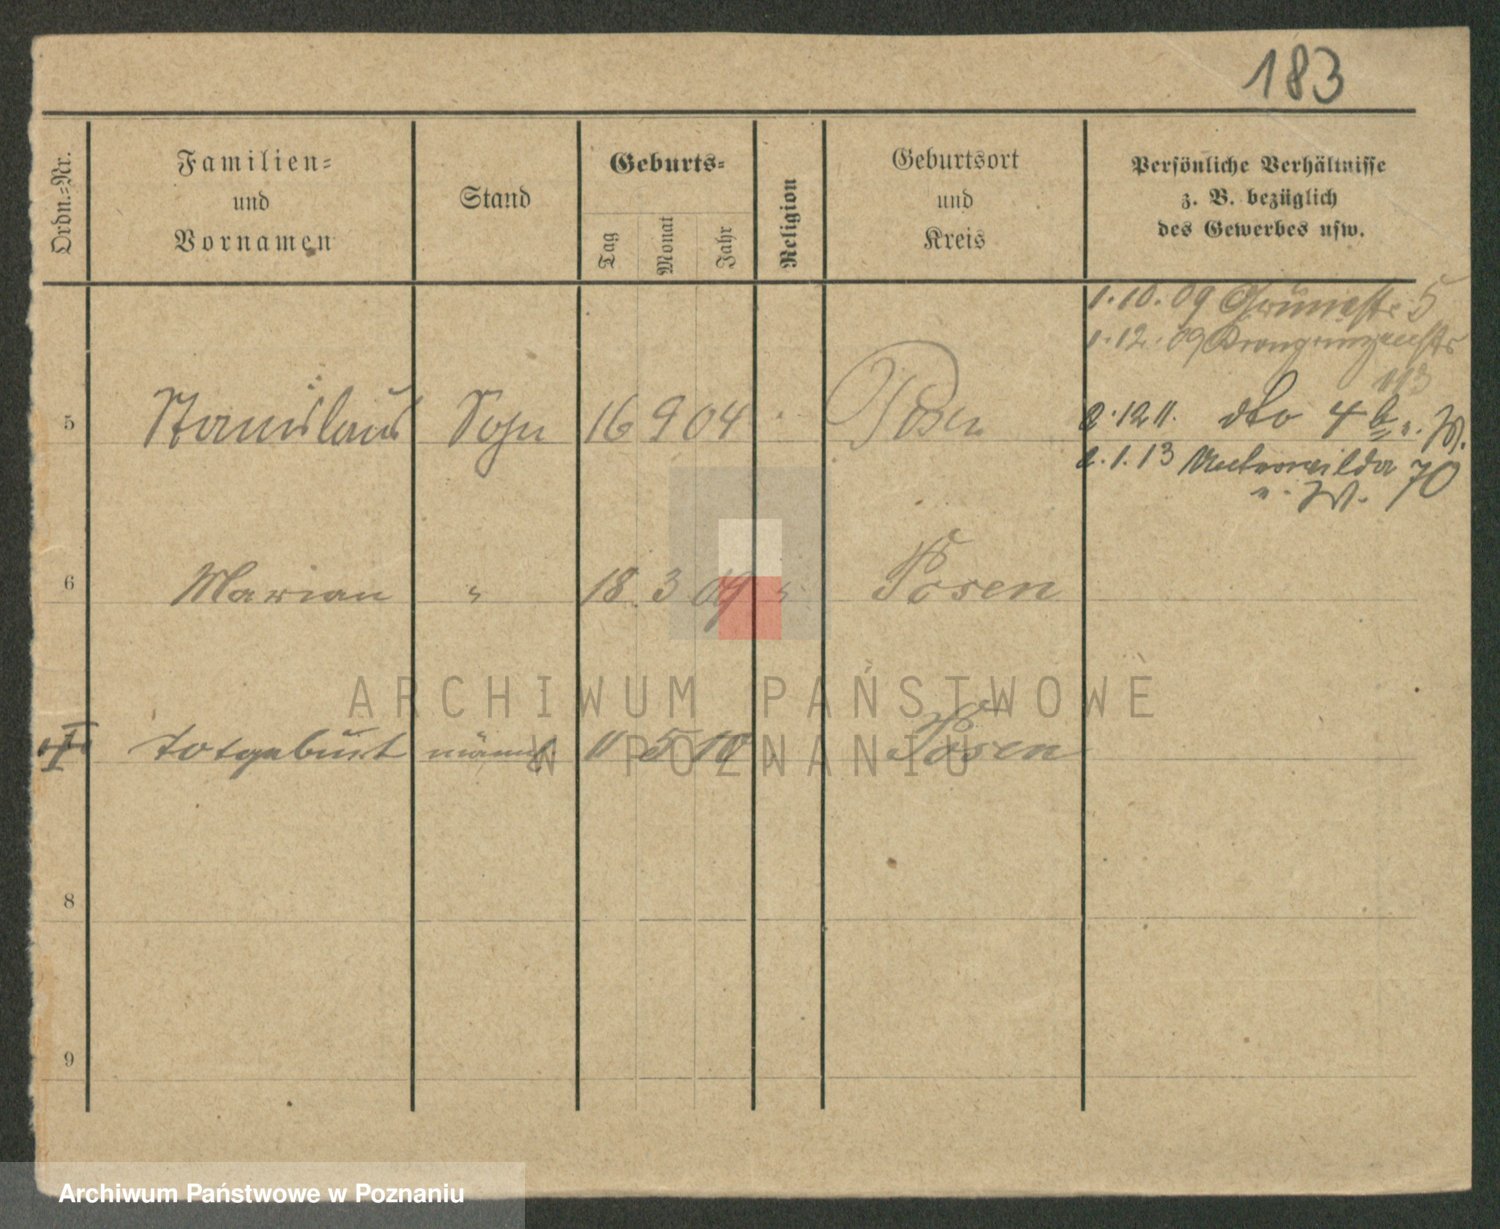 183
Ordn.-Nr.
Familien-
und
Vornamen
Stand
Geburts-
Tag
Monat
Jahr
Religion
Geburtsort
und
Kreis
Persönliche Verhältnisse
z. B. bezüglich
des Gewerbes usw.
1.10.09 Grünestr. 5
1.12.09 Kronprinzenstr
113
5 Stanislaus Sohn 16 9 04 Posen 2.12 11. dto 4 b
2.1.13 Unterwilda 70
6 Marian " 18 3 09 " Posen
Totgeburt männl. 11 5 10 Posen
8
9
ARCHIWUM PAŃSTWOWE
W POZNANIU
Archiwum Państwowe w Poznaniu